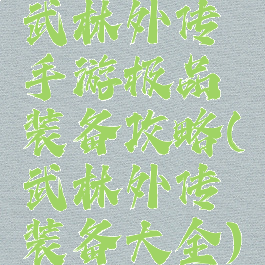 武林外传
手游极品
装备攻略(
武林外传
装备大全)